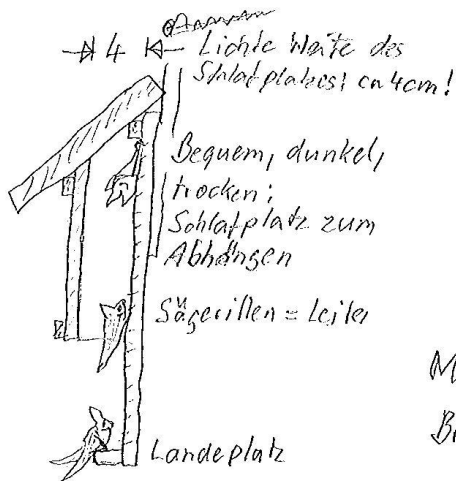 4 Lichte Weite des
Schlafplatzes: ca 4cm!
Bequem, dunkel,
trocken;
Schlafplatz zum
Abhängen
Sägerillen = Leiter
Landeplatz